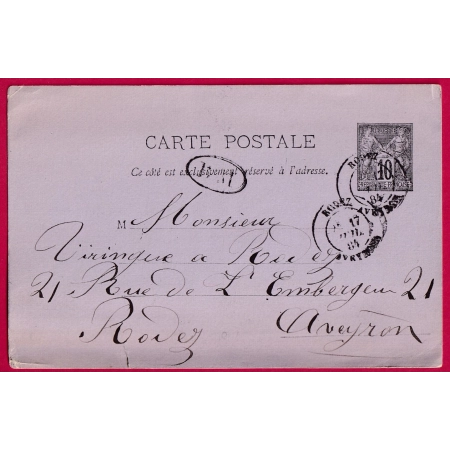 CARTE POSTALE
Ce côté est exclusivement réservé à l'adresse.
10
RODEZ
84
RODEZ
17
84
AVEYRON
M Monsieur
Viringue a Rodez
21 Rue de L'Embergue 21
Rodez Aveyron